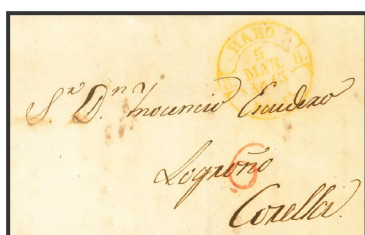 HARO
5
MAR
S.r D.n Inocencio Escudero
Logroño
6
Corella.